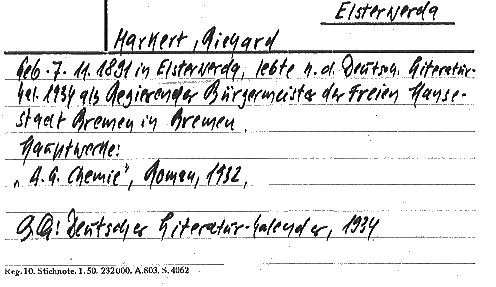 Elsterwerda
Markert, Richard
Geb. 7. 11. 1891 in Elsterwerda, lebte n. d. Deutsch. Literatur-
kal. 1934 als Regierender Bürgermeister der Freien Hanse-
stadt Bremen in Bremen.
Hauptwerke:
„A. G. Chemie", Roman, 1932,
Deutscher Literatur-Kalender, 1934
Reg. 10. Stichnote. 1. 50. 232000. A. 803. S. 4062